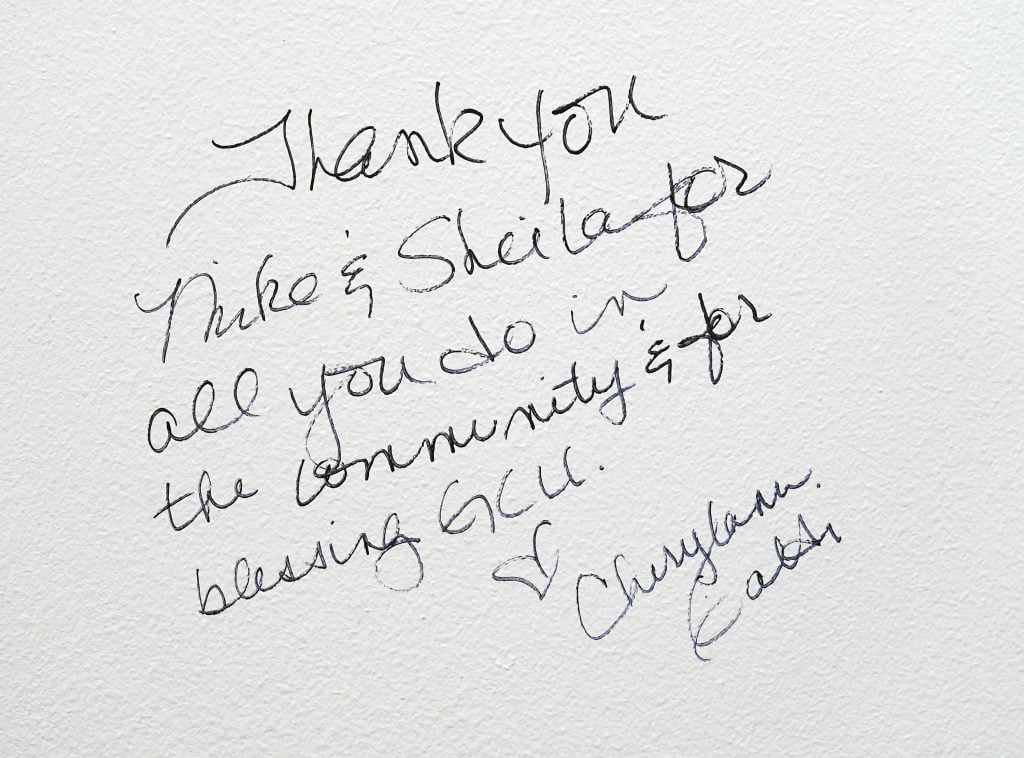 Thank you
Mike & Sheila for
all you do in
the community & for
blessing GCU.
♡ Cherylann